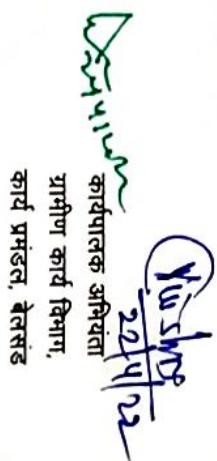 22/4/22
कार्यपालक अभियंता
ग्रामीण कार्य विभाग,
कार्य प्रमंडल, बेलसंड